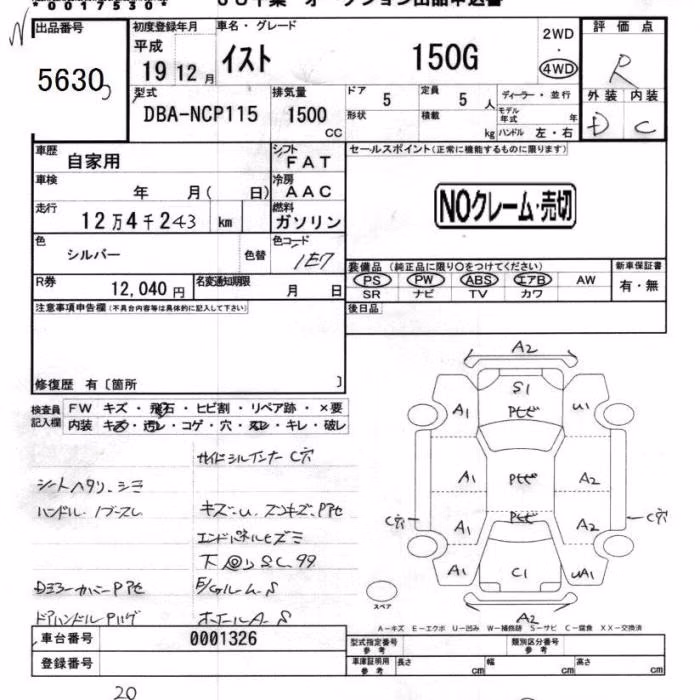 00175304
出品番号
5630
初度登録年月
平成
19 12 月
車名・グレード
イスト 150G
2WD
・
4WD
評価点
R
外装 内装
D C
型式
DBA-NCP115
排気量
1500
CC
ドア
5
定員
5 人
形状
積載
kg
ディーラー・並行
モデル年式 年
ハンドル 左・右
車歴
自家用
シフト
FAT
車検
年 月( 日)
冷房
AAC
走行
12万4千243 km
燃料
ガソリン
色
シルバー
色替
色コード
1E7
R券
12,040 円
名変通知期限
月 日
セールスポイント(正常に機能するものに限ります)
NOクレーム・売切
装備品 (純正品に限り○をつけてください)
PS PW ABS エアB AW
SR ナビ TV カワ
新車保証書
有・無
後日品
注意事項申告欄(不具合内容等は具体的に記入して下さい)
修復歴 有〔箇所 〕
検査員
記入欄
FW キズ・飛石・ヒビ割・リペア跡・×要
内装 キズ・汚レ・コゲ・穴・スレ・キレ・破レ
サイドシルインナーC穴
シートヘタリ、シミ
ハンドル
キズ・U
エンドパネルヒズミ
下
S C 99
カバー
E/gルーム S
ドアハンドル
ホイールA S
A2
S1
A1
U1
A1
A2
C穴
A1
A2
C穴
A1
C1
UA1
A2
スペア
A－キズ E－エクボ U－凹み W－補修跡 S－サビ C－腐食 XX－交換済
車台番号
0001326
登録番号
型式指定番号
参考
類別区分番号
参考
車庫証明用
参考
長さ cm
幅 cm
高さ cm
20